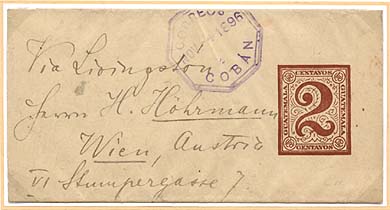 CORREOS
1896
COBÁN
Via Livingston
Herrn H. Höhrmann
Wien, Austria
VI Stumpergasse 7
CENTAVOS
GUATEMALA
2
GUATEMALA
CENTAVOS